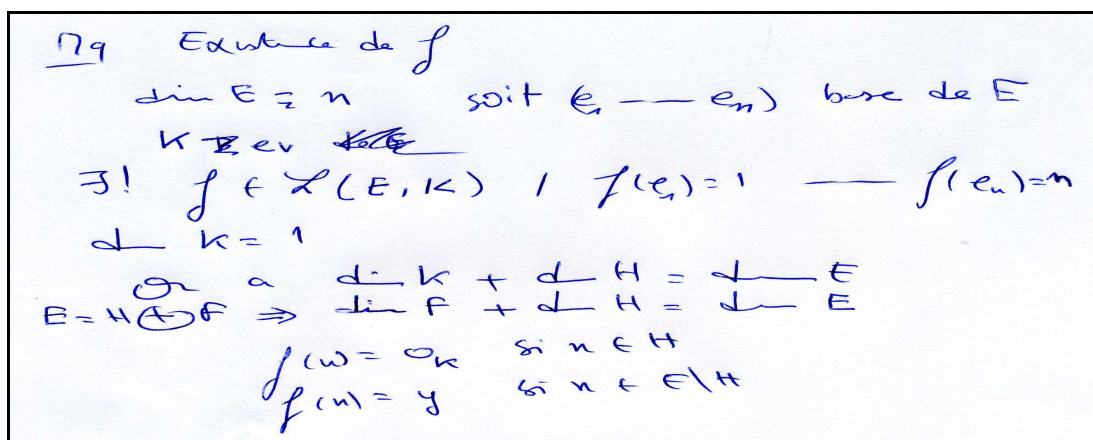 Mq Existence de f
dim E = n soit (e₁ — en) base de E
K ev
∃! f ∈ L(E, K) / f(e₁) = 1 — f(en) = n
dim K = 1
On a dim K + dim H = dim E
E = H ⊕ F ⇒ dim F + dim H = dim E
f(x) = 0K si x ∈ H
f(x) = y si x ∈ E\H